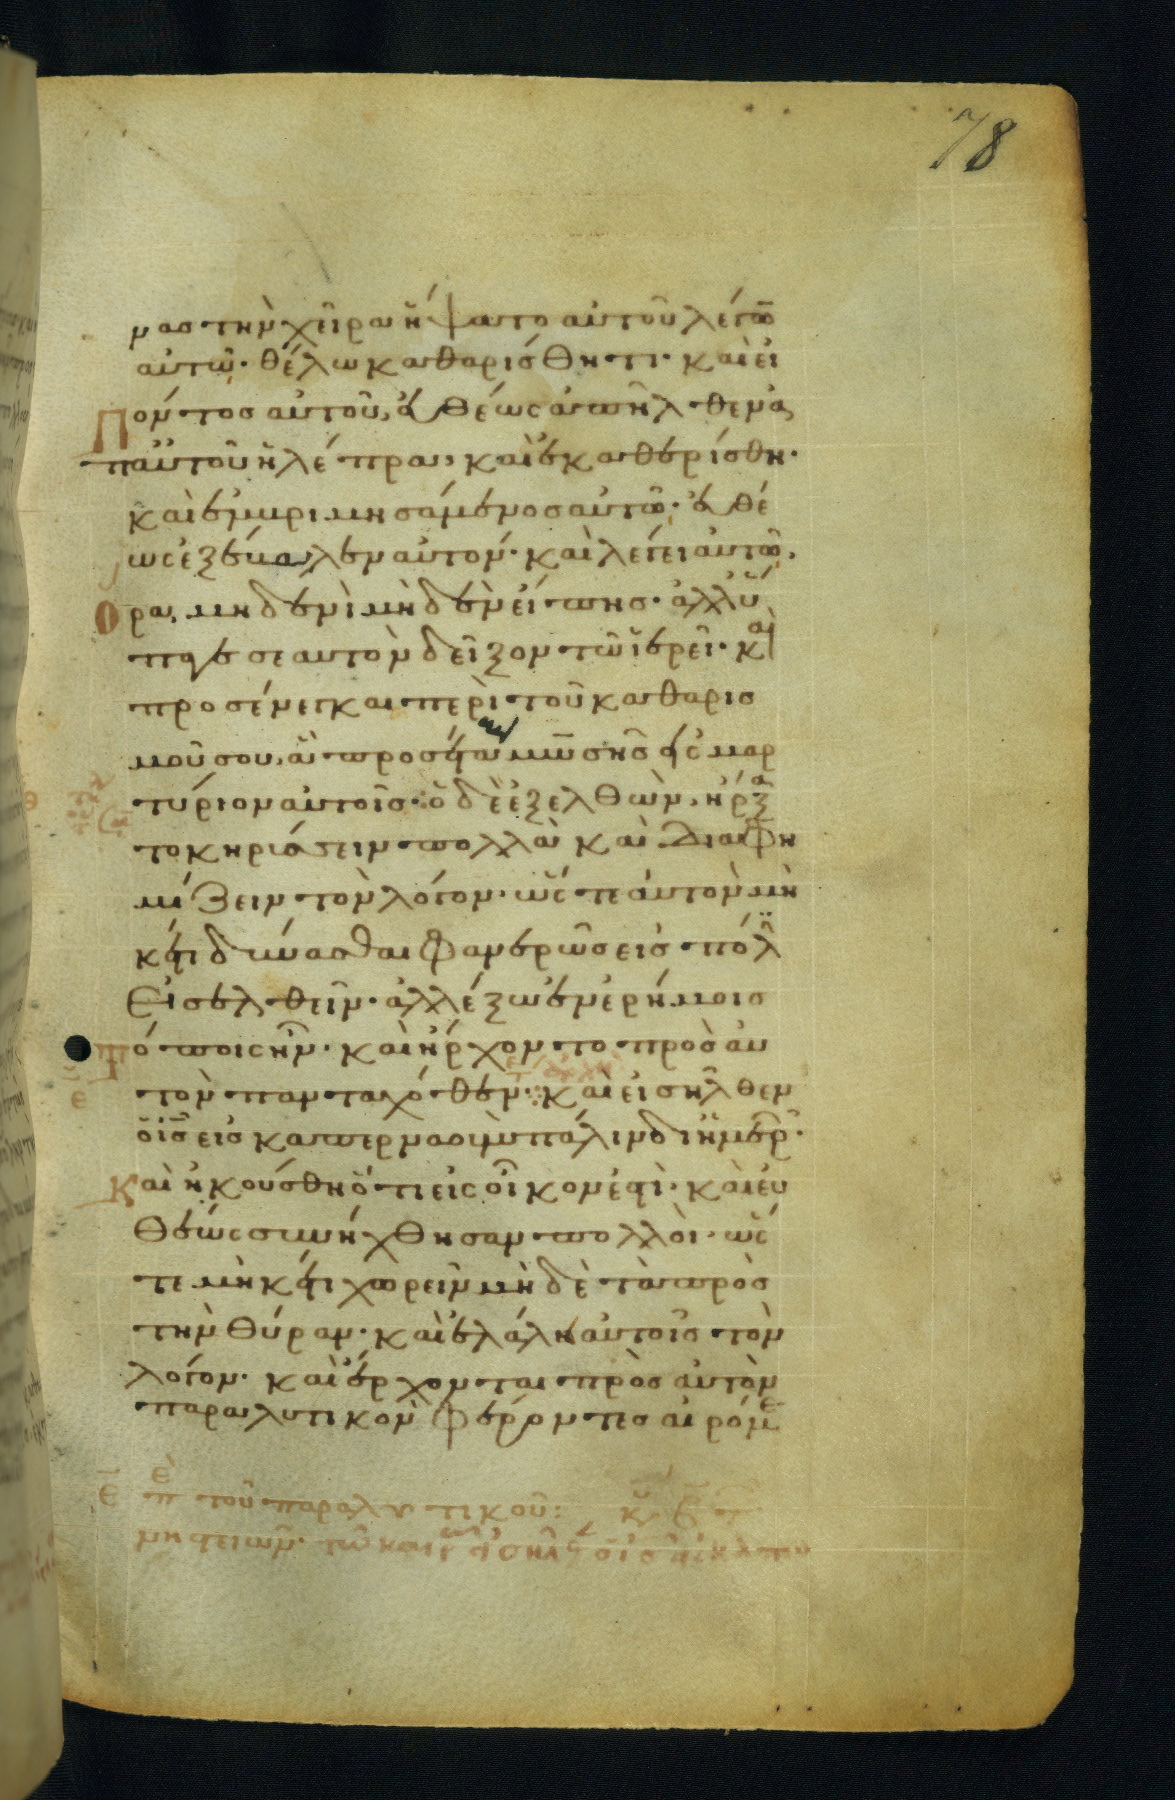 78
νας τὴν χεῖρα ἥψατο αὐτοῦ λέγων
αὐτῶ· θέλω καθαρίσθητι· καὶ εἰ
πόντος αὐτοῦ, εὐθέως ἀπῆλθεν ἀ
π αὐτοῦ ἡ λέπρα, καὶ ἐκαθερίσθη·
καὶ ἐμβριμησάμενος αὐτῶ· εὐθέ
ως ἐξέβαλεν αὐτόν· καὶ λέγει αὐτῶ·
ὅρα, μηδενὶ μηδὲν εἴπης· ἀλλ' ὕ
παγε σεαυτὸν δεῖξον τῶ ἱερεῖ· καὶ
προσένεγκαι περὶ τοῦ καθαρισ
μοῦ σου, ἃ προσέταξεν μωσῆς εἰς μαρ
τύριον αὐτοῖς· ὁ δὲ ἐξελθὼν, ἤρξα
το κηρύσσειν πολλὰ καὶ διαφη
μίζειν τὸν λόγον· ὥστε αὐτὸν μη
κέτι δύνασθαι φανερῶς εἰς πόλιν
εἰσελθεῖν· ἀλλ' ἔξω ἐν ἐρήμοις
τόποις ἦν· καὶ ἤρχοντο πρὸς αὐ
τὸν πανταχόθεν· καὶ εἰσῆλθεν
ὁ ις εἰς καπερναοὺμ πάλιν δι ἡμερ·
καὶ ἠκούσθη ὅτι εἰς οἶκον ἐστί· καὶ εὐ
θέως συνήχθησαν πολλοί· ὥσ
τε μηκέτι χωρεῖν μηδὲ τὰ πρὸς
τὴν θύραν· καὶ ἐλάλει αὐτοῖς τὸν
λόγον· καὶ ἔρχονται πρὸς αὐτὸν
παραλυτικὸν φέροντες αἰρόμε
ε̅ πε τοῦ παραλυτικοῦ: